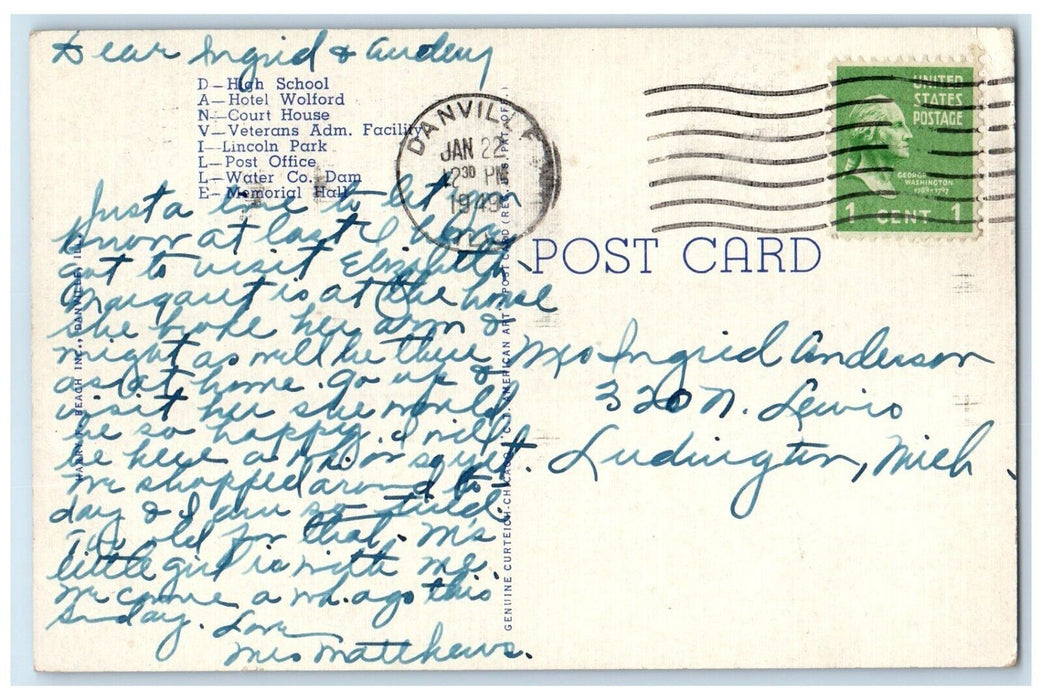 Dear Ingrid & Audery
D—High School
A—Hotel Wolford
N—Court House
V—Veterans Adm. Facility
I—Lincoln Park
L—Post Office
L—Water Co. Dam
E—Memorial Hall
Just a line to let you
know at last I have
got to visit Elizabeth.
Margaret is at the home
she broke her arm &
might as well be there
as at home. Go up &
visit her she would
be so happy. I will
be here a wk. or so yet.
We shopped around to-
day & I am so tired.
Too old for that. M's
little girl is with me.
We came a wk. ago this
Sunday. Love
Mrs Matthews.
DANVILLE
JAN 22
12 30 PM
1949
ILL.
UNITED
STATES
POSTAGE
GEORGE
WASHINGTON
1789-1797
1 CENT 1
POST CARD
Mrs Ingrid Anderson
320 N. Lewis
Ludington, Mich.
BEACH INC., DANVILLE, ILL.
GENUINE CURTEICH-CHICAGO "C.T. AMERICAN ART" POST CARD (REG. U.S. PAT. OFF.)